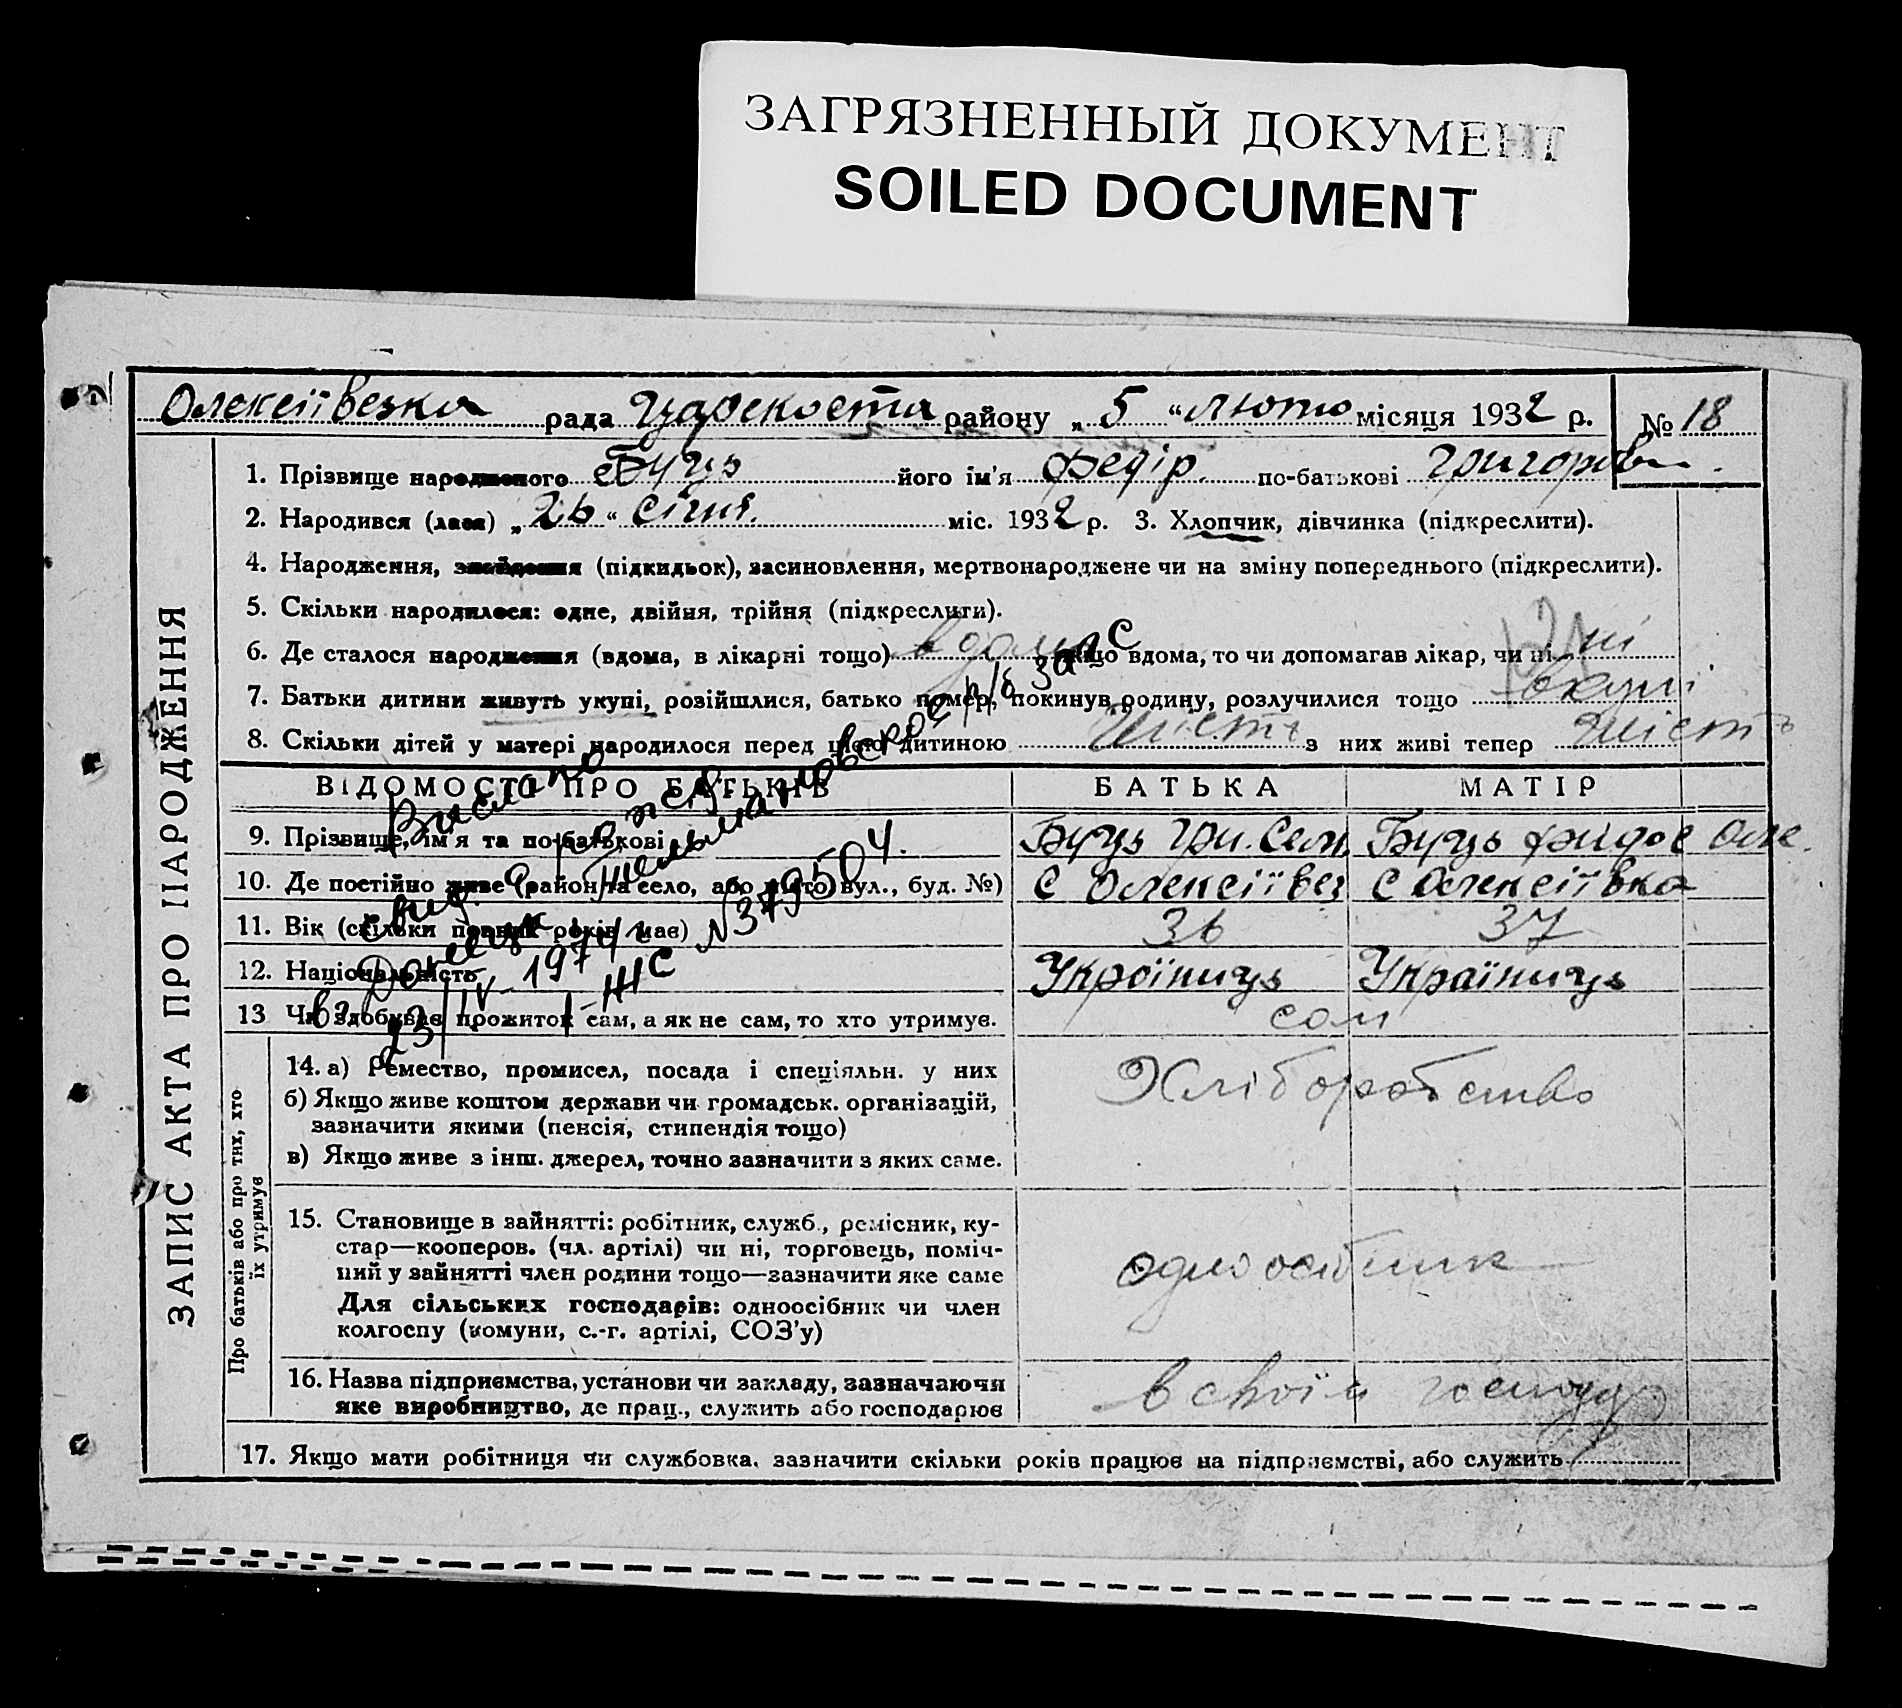 ЗАГРЯЗНЕННЫЙ ДОКУМЕНТ
SOILED DOCUMENT
рада району „ 5 “ люто місяця 1932 р. № 18
ЗАПИС АКТА ПРО НАРОДЖЕННЯ
1. Прізвище народженого Буць його ім'я Федір по-батькові Григоров
2. Народився (лася) „ 26 “ січня. міс. 1932 р. 3. Хлопчик, дівчинка (підкреслити).
4. Народження, знайдення (підкидьок), засиновлення, мертвонароджене чи на зміну попереднього (підкреслити).
5. Скільки народилося: одне, двійня, трійня (підкреслити).
6. Де сталося народження (вдома, в лікарні тощо) вдома якщо вдома, то чи допомагав лікар, чи ні ні
7. Батьки дитини живуть укупі, розійшлися, батько помер, покинув родину, розлучилися тощо
8. Скільки дітей у матері народилося перед цією дитиною шість з них живі тепер шість
ВІДОМОСТІ ПРО БАТЬКІВ БАТЬКА МАТІР
9. Прізвище, ім'я та по-батькові Буць Гри. Сем. Буць
10. Де постійно живе (район та село, або місто вул., буд. №) с с Олексіївка
11. Вік (скільки повних років має) 36 37
12. Національність Україниць Україниць
13 Чи здобуває прожиток сам, а як не сам, то хто утримує. сам
Про батьків або про тих, хто
їх утримує
14. а) Ремество, промисел, посада і спеціяльн. у них Хліборобство
б) Якщо живе коштом держави чи громадськ. організацій,
зазначити якими (пенсія, стипендія тощо)
в) Якщо живе з інш. джерел, точно зазначити з яких саме.
15. Становище в зайнятті: робітник, служб., ремісник, ку-
стар—кооперов. (чл. артілі) чи ні, торговець, поміч-
ний у зайнятті член родини тощо—зазначити яке саме одноосібник
Для сільських господарів: одноосібник чи член
колгоспу (комуни, с.-г. артілі, СОЗ'у)
16. Назва підприємства, установи чи закладу, зазначаючи в своїм господ
яке виробництво, де прац., служить або господарює
17. Якщо мати робітниця чи службовка, зазначити скільки років працює на підприємстві, або служить
Выслано
свид. о рожд.
в г. Донецк
загс
23/IV-1974 г. № 379504.
I-ЖС